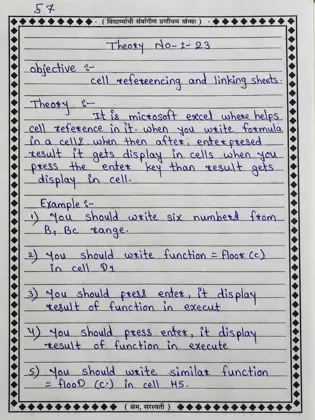 57
( विद्यार्थ्यांची सर्वांगीण प्रगतीचा संस्था )
Theory No-1-23
objective :-
cell refereencing and linking sheets.
Theory :-
It is microsoft excel where helps
cell reference in it. when you write formula
in a cell? when then after, enter presed
result it gets display in cells when you
press the enter key than result gets
display in cell.
Example :-
1) You should write six numbers from
B, Bc range.
2) You should write function = Floor (c)
in cell D1
3) You should press enter, it display
result of function in execut
4) You should press enter, it display
result of function in execute
5) You should write similar function
= flooD (c.) in cell H5.
( श्रम, सरस्वती )